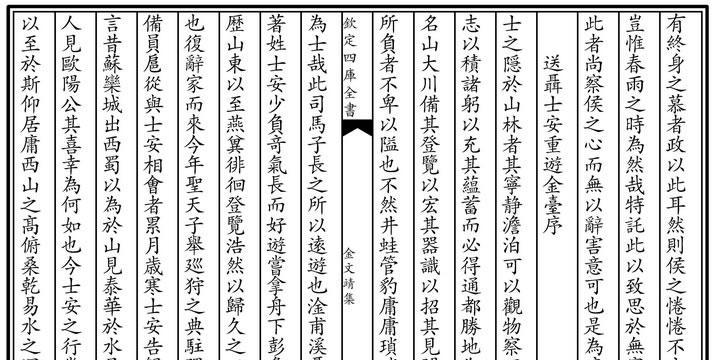 有終身之慕者政以此耳然則侯之惓惓不
豈惟春雨之時為然哉特託此以致思於無
此者尚察侯之心而無以辭害意可也是為
送聶士安重遊金臺序
士之隱於山林者其寧静澹泊可以觀物察
志以積諸躬以充其蘊蓄而必得通都勝地
名山大川備其登覽以宏其器識以招其見
所負者不卑以隘也不然井蛙管豹庸庸瑣
欽定四庫全書
金文靖集
為士哉此司馬子長之所以遠遊也淦甫溪
著姓士安少負竒氣長而好遊嘗拿舟下彭
歴山東以至燕冀徘徊登覽浩然以歸久之
也復辭家而來今年聖天子舉廵狩之典駐
備員扈從與士安相會者累月歳寒士安告
言昔蘇欒城出西蜀以為於山見泰華於水
人見歐陽公其喜幸為何如也今士安之行
以至於斯仰居庸西山之髙俯桑乾易水之